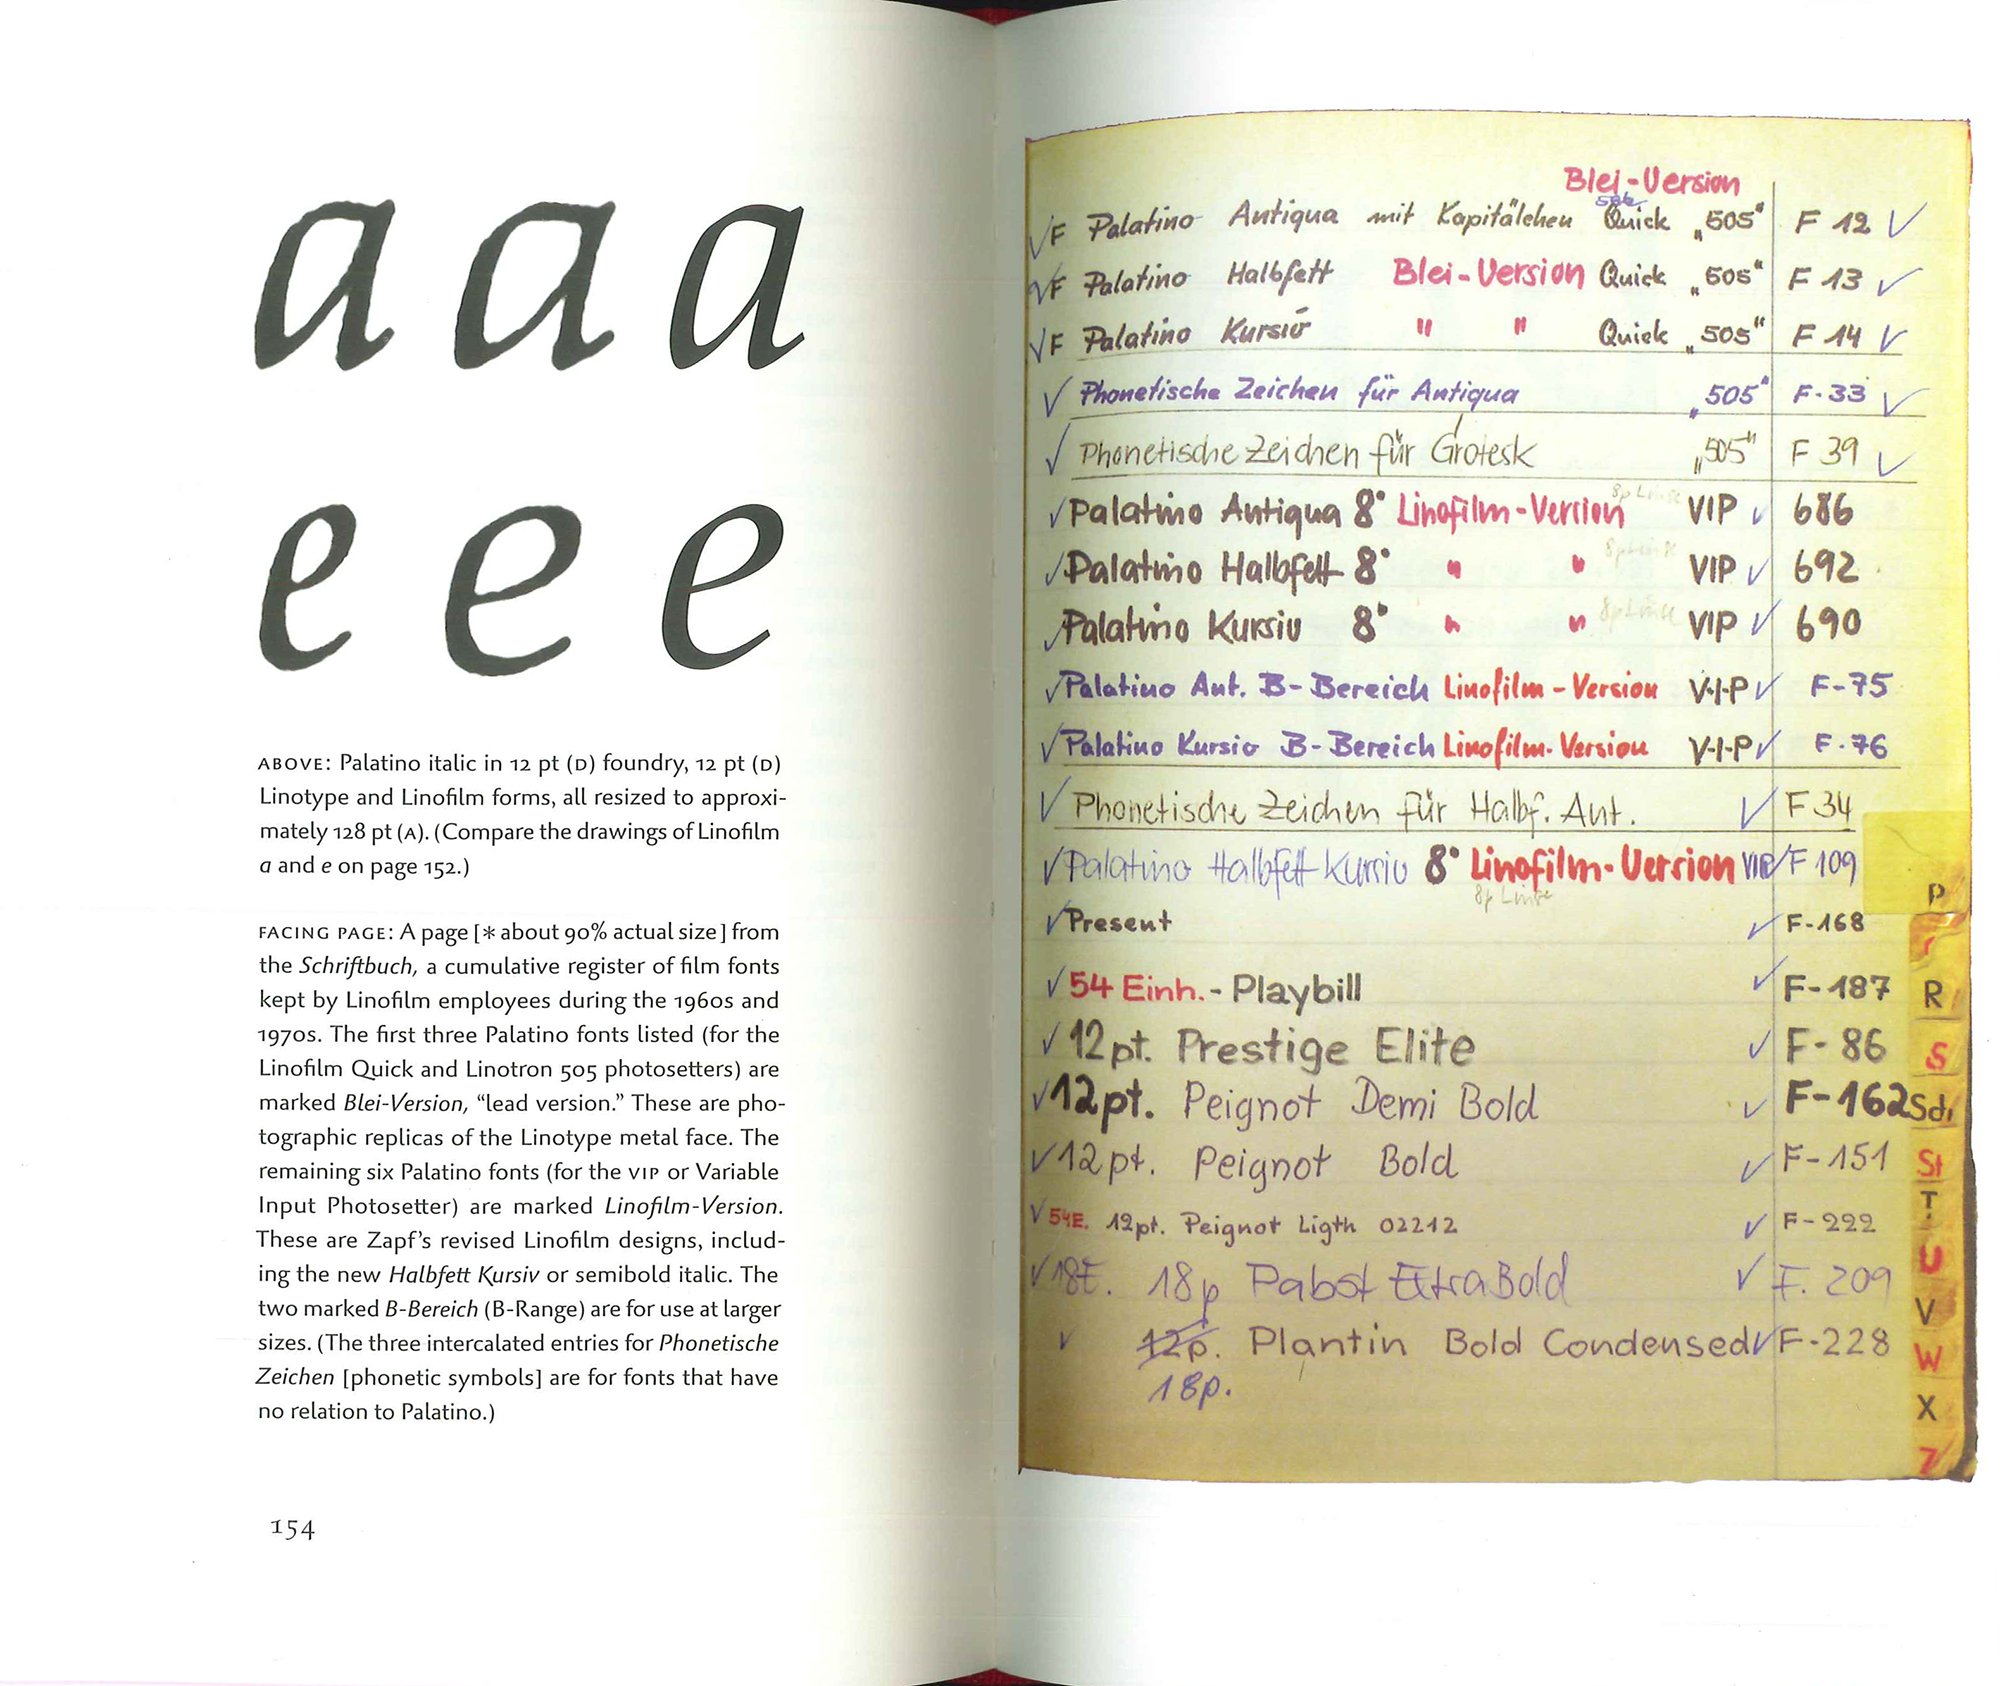 a a a
e e e
ABOVE: Palatino italic in 12 pt (D) foundry, 12 pt (D)
Linotype and Linofilm forms, all resized to approxi-
mately 128 pt (A). (Compare the drawings of Linofilm
a and e on page 152.)
FACING PAGE: A page [* about 90% actual size] from
the Schriftbuch, a cumulative register of film fonts
kept by Linofilm employees during the 1960s and
1970s. The first three Palatino fonts listed (for the
Linofilm Quick and Linotron 505 photosetters) are
marked Blei-Version, “lead version.” These are pho-
tographic replicas of the Linotype metal face. The
remaining six Palatino fonts (for the VIP or Variable
Input Photosetter) are marked Linofilm-Version.
These are Zapf’s revised Linofilm designs, includ-
ing the new Halbfett Kursiv or semibold italic. The
two marked B-Bereich (B-Range) are for use at larger
sizes. (The three intercalated entries for Phonetische
Zeichen [phonetic symbols] are for fonts that have
no relation to Palatino.)
154
Blei-Version
✓F Palatino Antiqua mit Kapitälchen Quick „505“ F 12 ✓
✓F Palatino Halbfett Blei-Version Quick „505“ F 13 ✓
✓F Palatino Kursiv " " Quick „505“ F 14 ✓
✓ Phonetische Zeichen für Antiqua „505“ F-33 ✓
✓ Phonetische Zeichen für Grotesk „505“ F 39 ✓
8p Linse
✓ Palatino Antiqua 8° Linofilm-Version VIP ✓ 686
8p Linse
✓ Palatino Halbfett 8° " " VIP ✓ 692
8p Linse
✓ Palatino Kursiv 8° " " VIP ✓ 690
✓ Palatino Ant. B-Bereich Linofilm-Version V-I-P ✓ F-75
✓ Palatino Kursiv B-Bereich Linofilm-Version V-I-P ✓ F-76
✓ Phonetische Zeichen für Halbf. Ant. ✓ F 34
✓ Palatino Halbfett Kursiv 8° Linofilm-Version VIP ✓ F 109
8p Linse
✓ Present ✓ F-168
✓ 54 Einh. - Playbill ✓ F-187
✓ 12pt. Prestige Elite ✓ F-86
✓ 12pt. Peignot Demi Bold ✓ F-162
✓ 12pt. Peignot Bold ✓ F-151
✓ 54E. 12pt. Peignot Ligth 02212 ✓ F-222
✓ 18E. 18p Pabst ExtraBold ✓ F. 209
✓ 12p. Plantin Bold Condensed ✓ F-228
18p.
P
R
S
Sch
St
T
U
V
W
X
Z